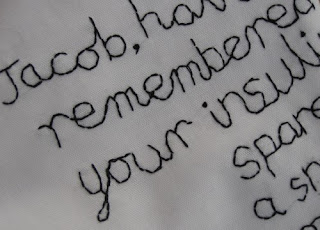 Jacob, hav
remembered
your insuli
spare
a sn